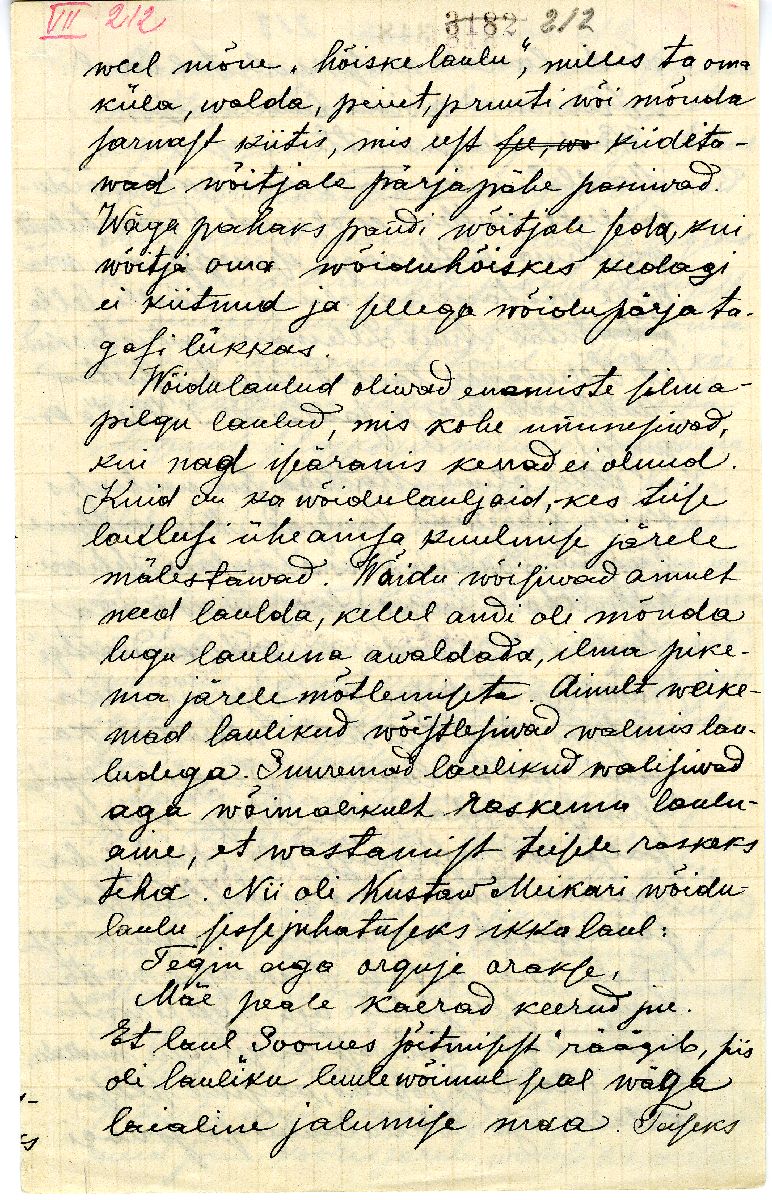 VII 212
3182 212
weel mõne „hõiskelaulu“, milles ta oma
küla, walda, peiut, pruuti wõi mõnda
sarnast kiitis, mis eest kiideta-
wad wõitjale pärja pähe paniwad.
Wäga pahaks pandi wõitjale seda, kui
wõitja oma wõiduhõiskes kedagi
ei kiitnud ja sellega wõidupärja ta-
gasi lükkas.
Wõidulaulud oliwad enamiste silma-
pilgu laulud, mis kohe ununesiwad,
kui nagl iseäranis kerrad ei olnud.
Kuid on ka wõidulauljaid, kes teise
laulusi üheainsa kuulmise järele
mälestawad. Wõidu wõisiwad ainult
need laulda, kellel andi oli mõnda
lugu lauluna awaldada, ilma pike-
ma järele mõtlemiseta. Ainult weike-
mad laulikud wõistlesiwad walmis lau-
ludega. Suuremad laulikud walisiwad
aga wõimalikult raskema laulu-
aine, et wastamist teisele raskeks
teha. Nii oli Kustaw Meikari wõidu-
laulu sissejuhatuseks ikka laul:
Tegin aga orguje orakse,
Mäe peale kaerad keerud jne.
Et laul Soomes sõitmisest räägib, siis
oli lauliku luulewõimul seal wäga
laialine jalumise maa. Teiseks